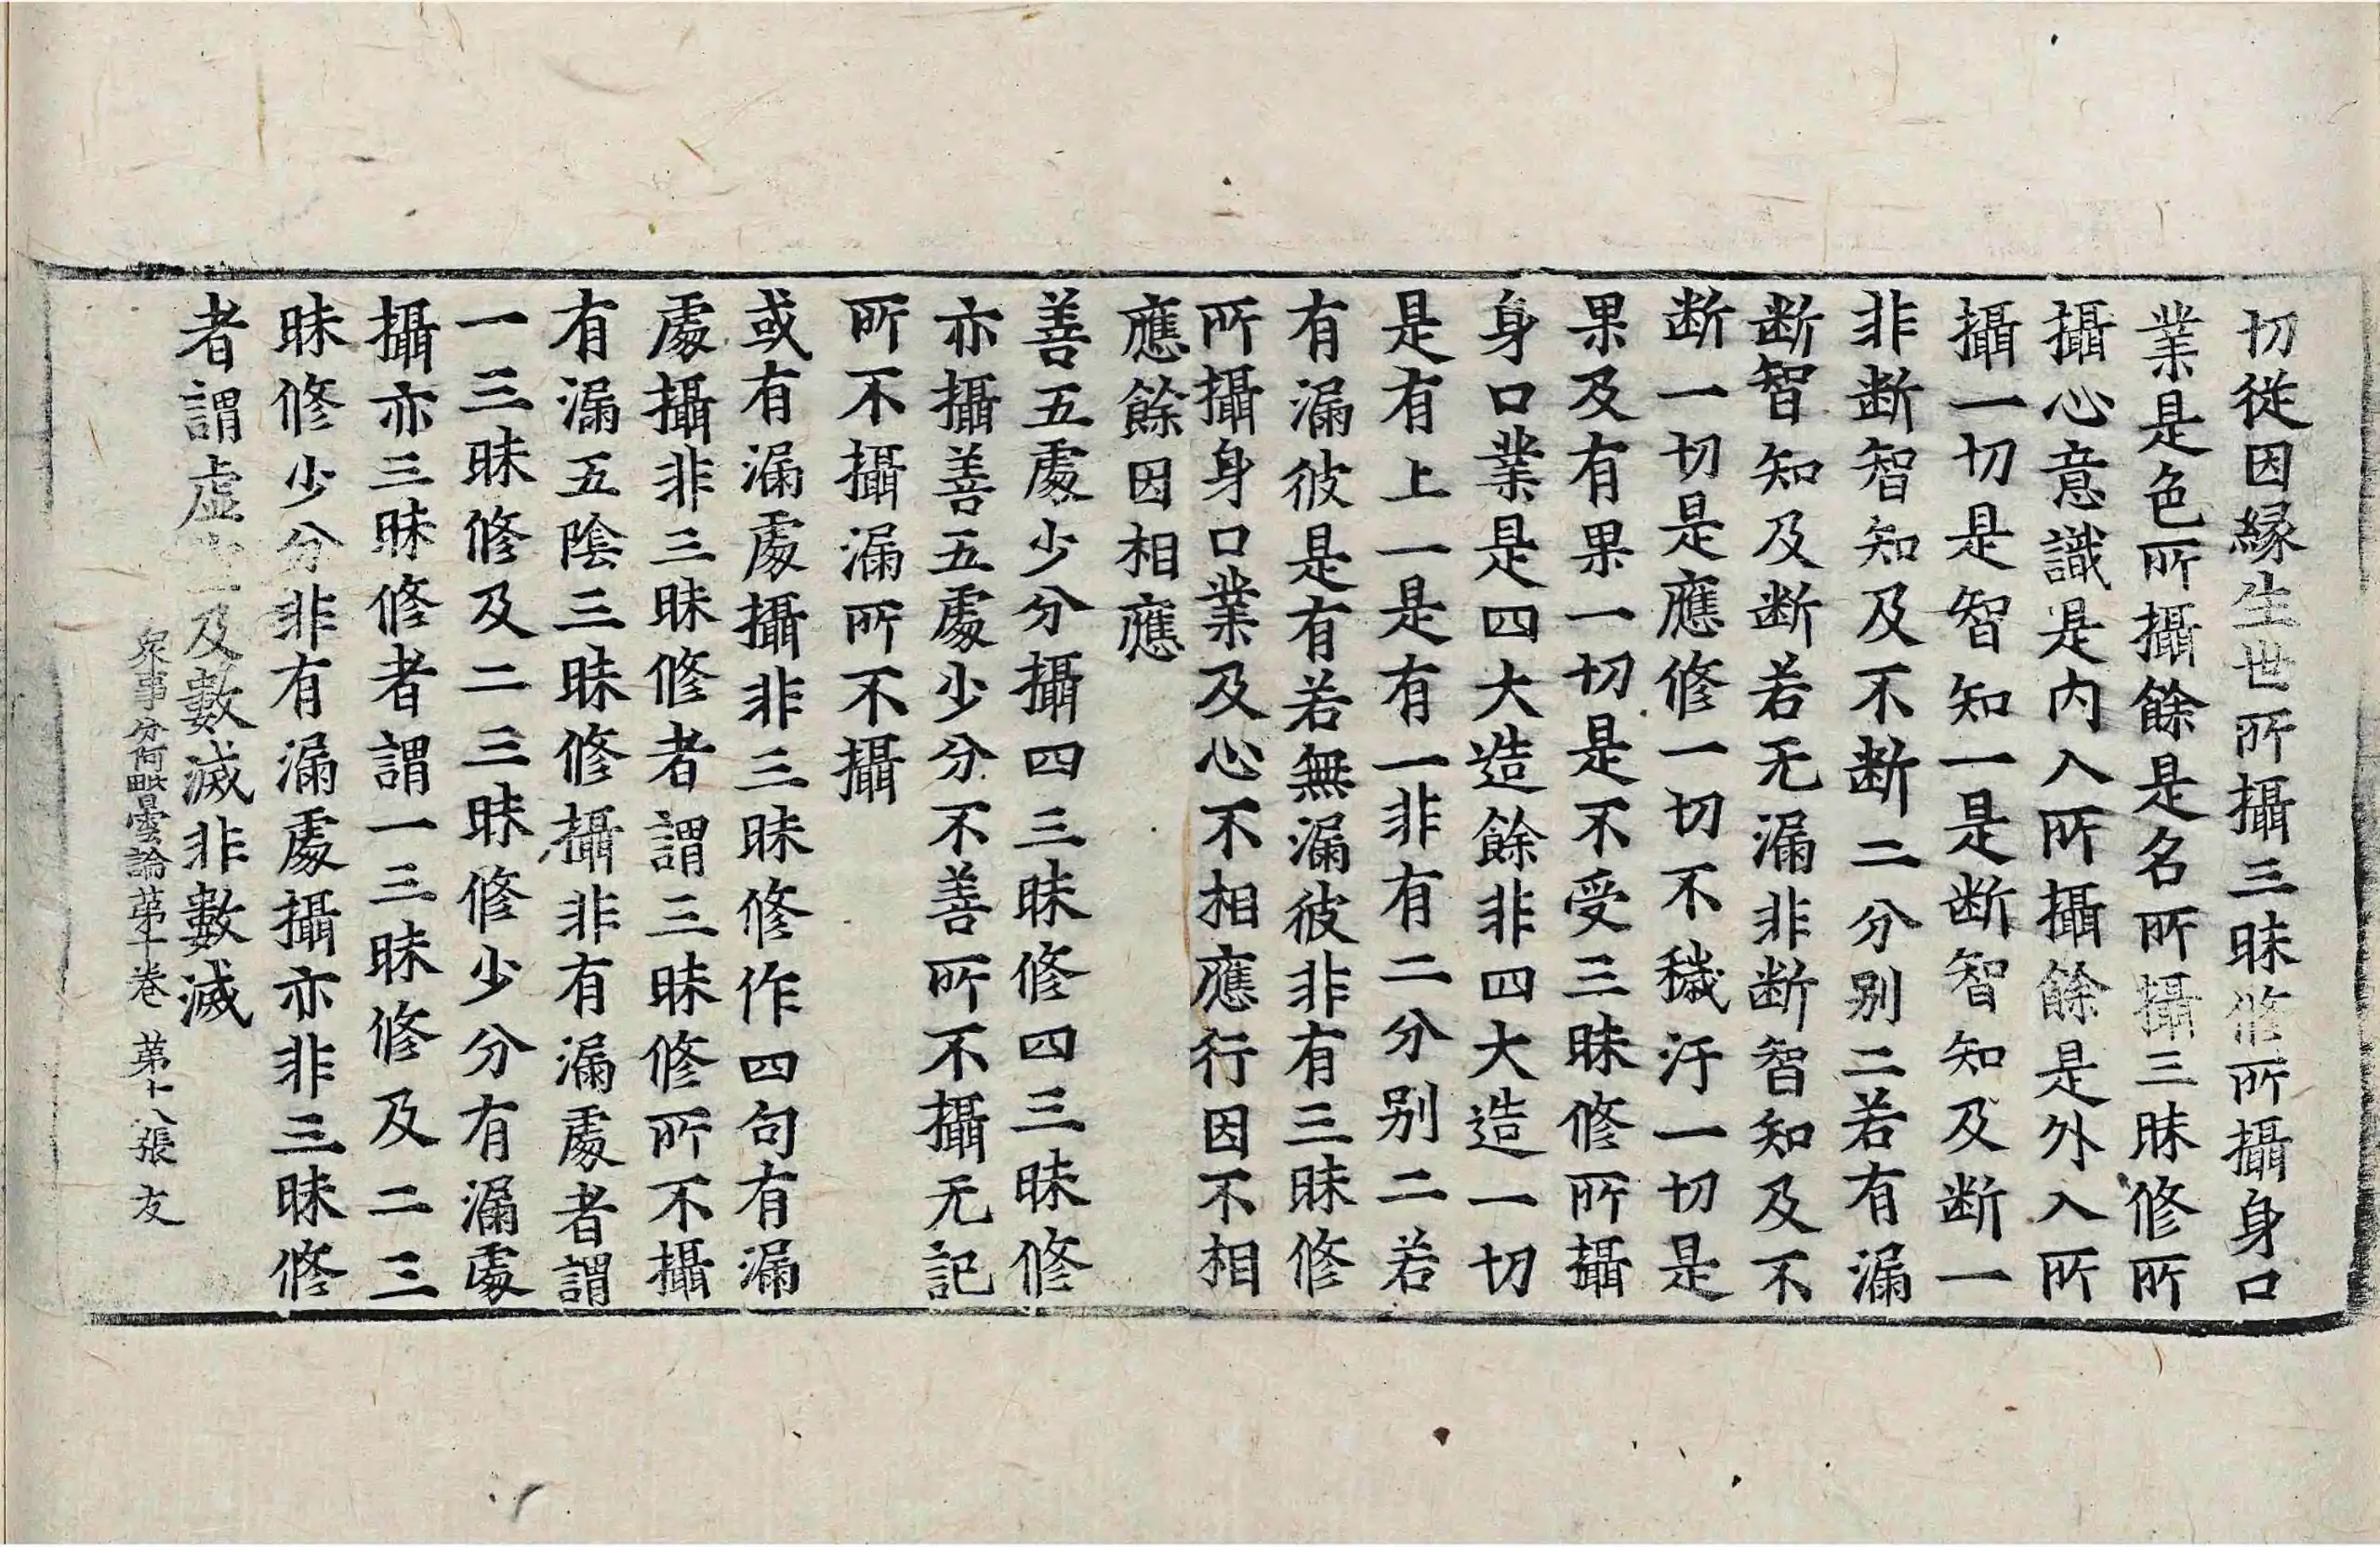 切從因緣生世所攝三昧修所攝身口
業是色所攝餘是名所攝三昧修所
攝心意識是內入所攝餘是外入所
攝一切是智知一是断智知及断一
非断智知及不断二分别二若有漏
断智知及断若无漏非断智知及不
断一切是應修一切不穢汙一切是
果及有果一切是不受三昧修所攝
身口業是四大造餘非四大造一切
是有上一是有一非有二分别二若
有漏彼是有若無漏彼非有三昧修
所攝身口業及心不相應行因不相
應餘因相應
善五處少分攝四三昧修四三昧修
亦攝善五處少分不善所不攝无記
所不攝漏所不攝
或有漏處攝非三昧修作四句有漏
處攝非三昧修者謂三昧修所不攝
有漏五陰三昧修攝非有漏處者謂
一三昧修及二三昧修少分有漏處
攝亦三昧修者謂一三昧修及二三
昧修少分非有漏處攝亦非三昧修
者謂虛空及數滅非數滅
衆事分阿毗曇論苐十卷 苐十八張 友